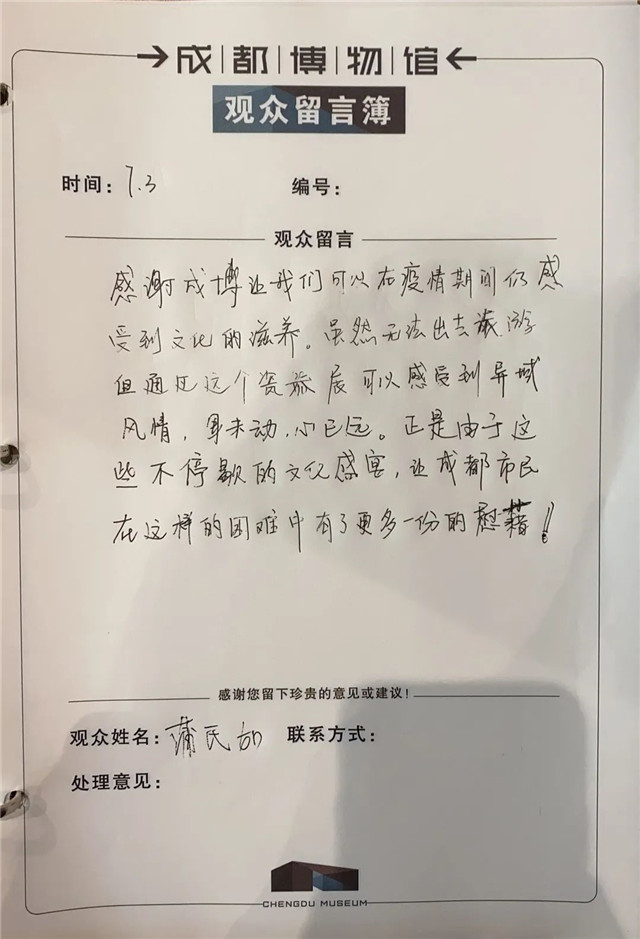 成都博物馆
观众留言簿
时间：7.3 编号：
观众留言
感谢成博让我们可以在疫情期间仍感
受到文化的滋养。虽然无法出去旅游
但通过这个瓷旅展可以感受到异域
风情，身未动，心已远。正是由于这
些不停歇的文化盛宴，让成都市民
在这样的困难中有了更多一份的慰藉！
感谢您留下珍贵的意见或建议！
观众姓名：蒲民如 联系方式：
处理意见：
CHENGDU MUSEUM